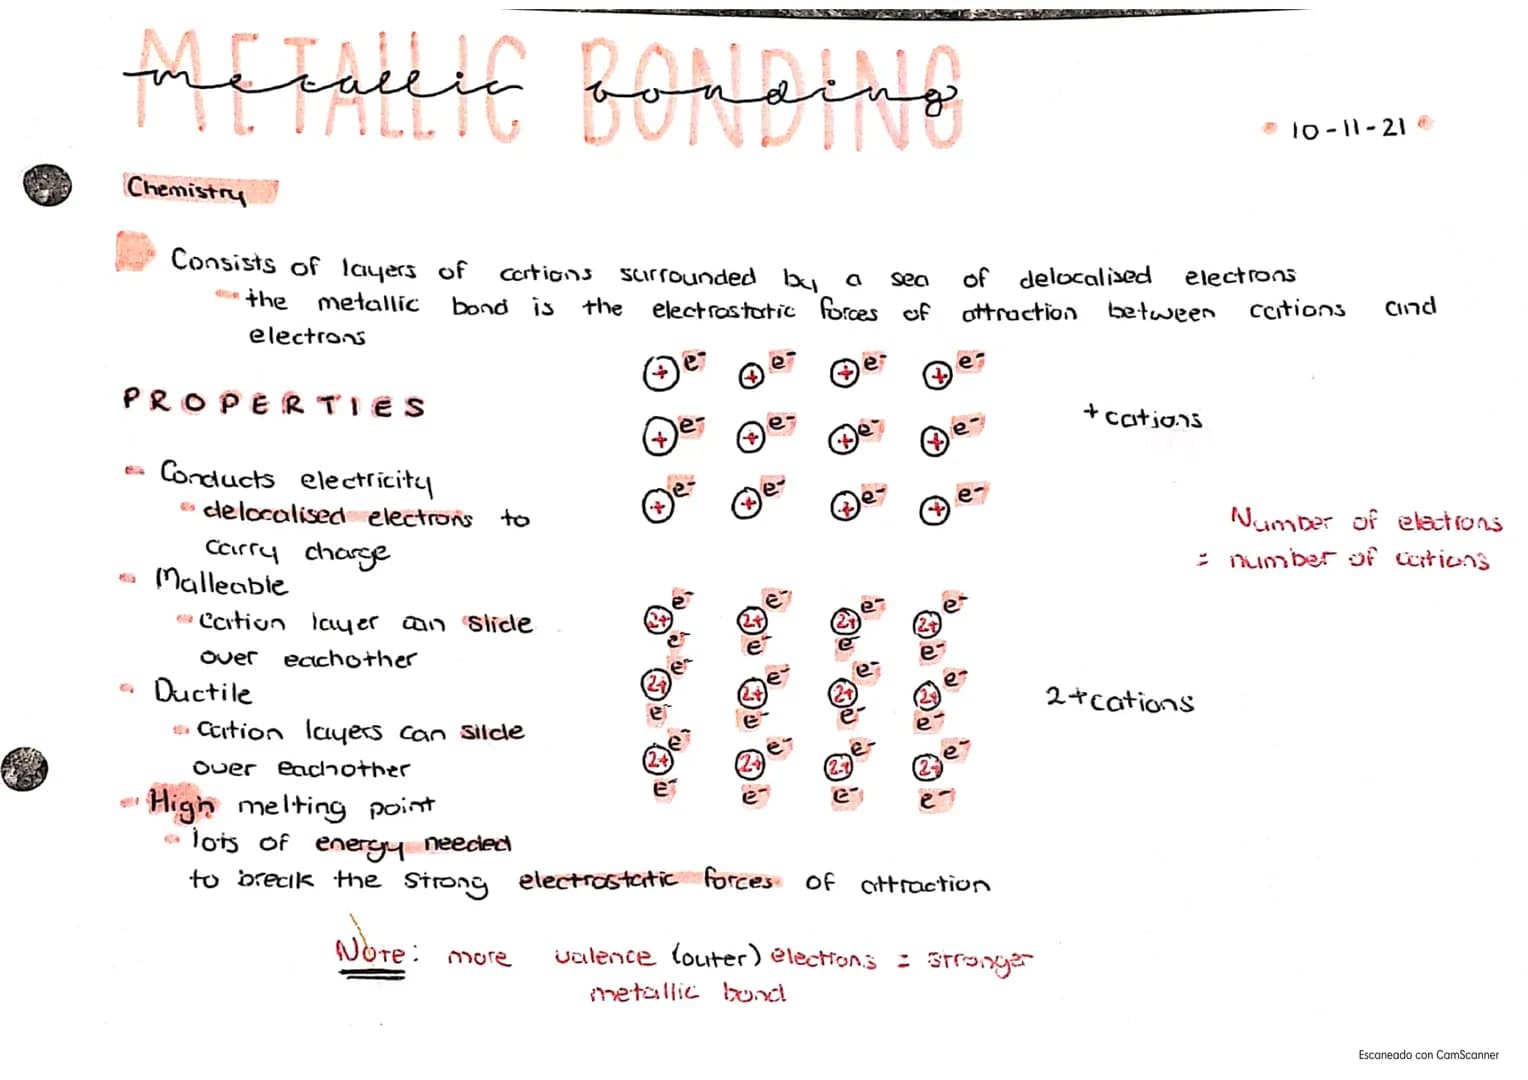 METALLIC BONDING
metallic bonding
10-11-21
Chemistry
Consists of layers of cations surrounded by a sea of delocalised electrons
the metallic bond is the electrostatic forces of attraction between cations and
electrons
+ e- + e- + e- + e-
PROPERTIES
+ cations
+ e- + e- + e- + e-
Conducts electricity
+ e- + e- + e- + e-
delocalised electrons to
carry charge
Number of electrons
= number of cations
Malleable
cation layer can slide
over eachother
2+ e- 2+ e- 2+ e- 2+ e-
e- e- e- e-
Ductile
2+ e- 2+ e- 2+ e- 2+ e-
e- e- e- e-
2+ cations
cation layers can slide
over eachother
2+ e- 2+ e- 2+ e- 2+ e-
e- e- e- e-
High melting point
lots of energy needed
to break the strong electrostatic forces of attraction
Note: more valence (outer) electrons = stronger
metallic bond
Escaneado con CamScanner